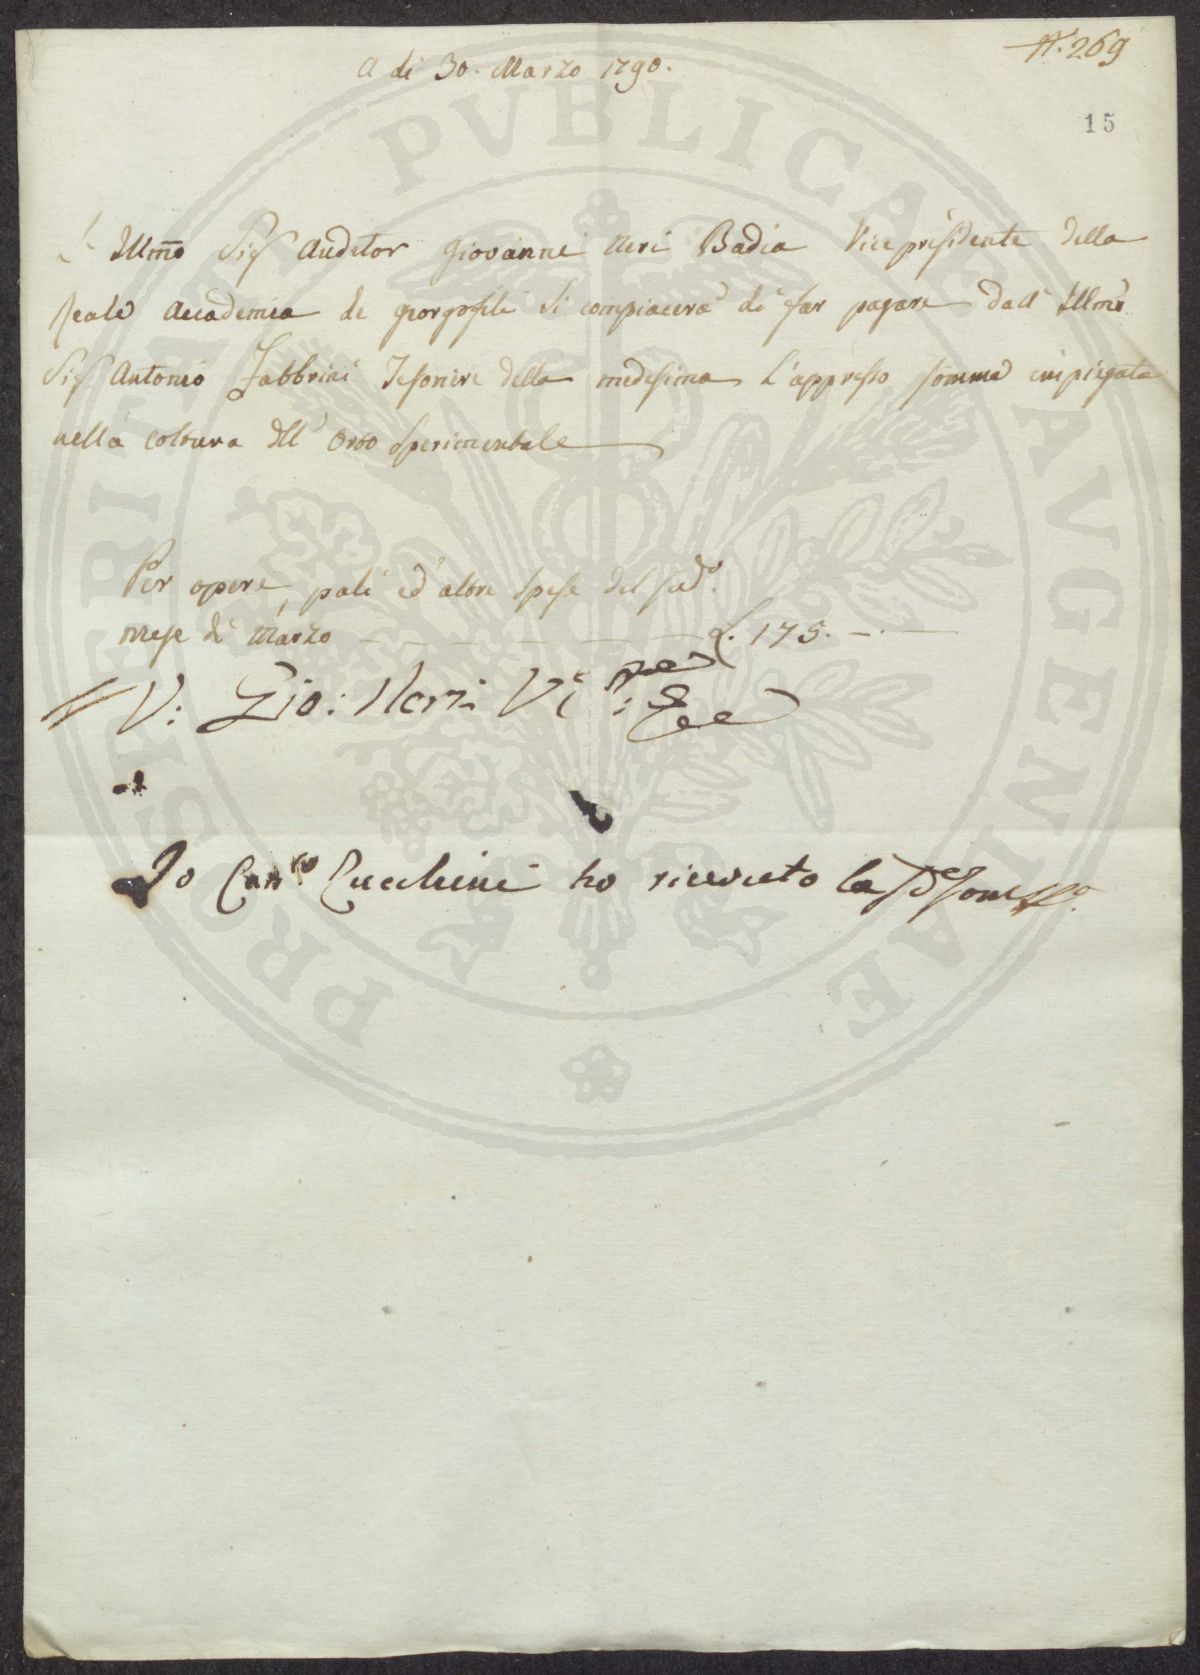 N. 269
A dì 30. Marzo 1790.
15
L' Illmo Sig Auditor Giovanni Neri Badia Vice presidente della
Reale Accademia de Gorgofili si compiacerà di far pagare dall' Illmo
Sig Antonio Fabbrini Tesoriere della medesima L'appresso somma impiegata
nella coltura dell' Orto Sperimentale
Per opere, pali ed' altre spese del sado.
mese di Marzo L. 175. -. -
V: Gio: Neri V:
Io Cucchini ho ricevuto la
PROSPERITATI PVBLICAE AVGENDAE